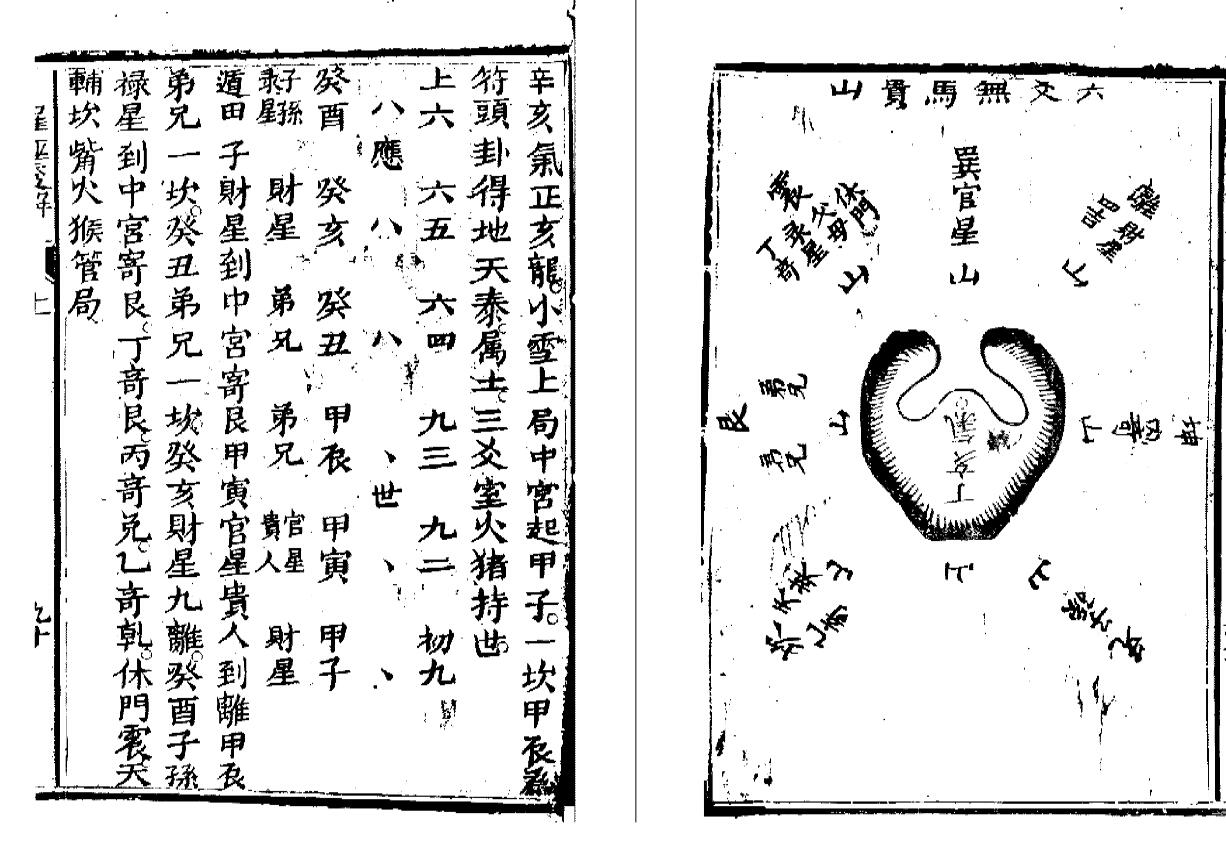 六爻無馬貴山
巽官星山
離財星
山
震
休門
父母
彔星
丁奇
山
艮
弟兄
弟兄
山
坤
山
丁亥氣
山
山
辛亥氣正亥龍小雪上局中宮起甲子一坎甲辰孫
符頭卦得地天泰属土三爻室火猪持世
上六 六五 六四 九三 九二 初九
八應 八 八 、世 、 、
癸酉 癸亥 癸丑 甲辰 甲寅 甲子
子孫彔星 財星 弟兄 弟兄 官星貴人 財星
遁田子財星到中宮寄艮甲寅官星貴人到離甲辰
弟兄一坎癸丑弟兄一坎癸亥財星九離癸酉子孫
祿星到中宮寄艮丁奇艮丙奇兌乙奇乾休門震天
輔坎觜火猴管局
上
九十